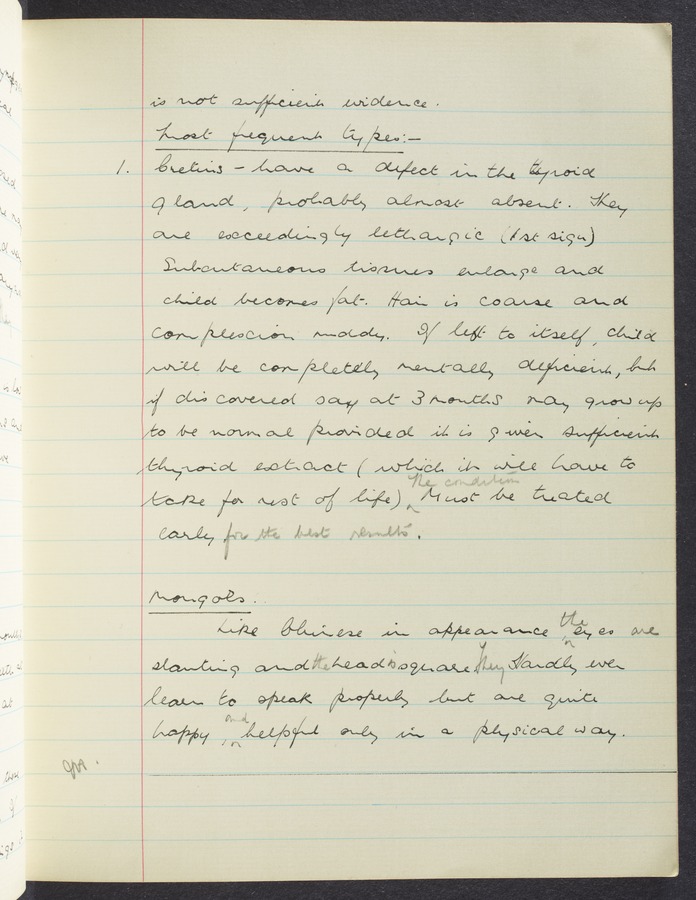 is not sufficient evidence.
Most frequent types:-
1. Cretins - have a defect in the thyroid
gland, probably almost absent. They
are exceedingly lethargic (1st sign)
Subcutaneous tissues enlarge and
child becomes fat. Hair is coarse and
complexion muddy. If left to itself, child
will be completely mentally deficient, but
if discovered say at 3 months may grow up
to be normal provided it is given sufficient
thyroid extract (which it will have to
take for rest of life) ^ the condition Must be treated
early for the best results.
Mongols.
Like Chinese in appearance ^ the eyes are
slanting and the head is square They Hardly ever
learn to speak properly but are quite
happy, ^ and helpful only in a physical way.